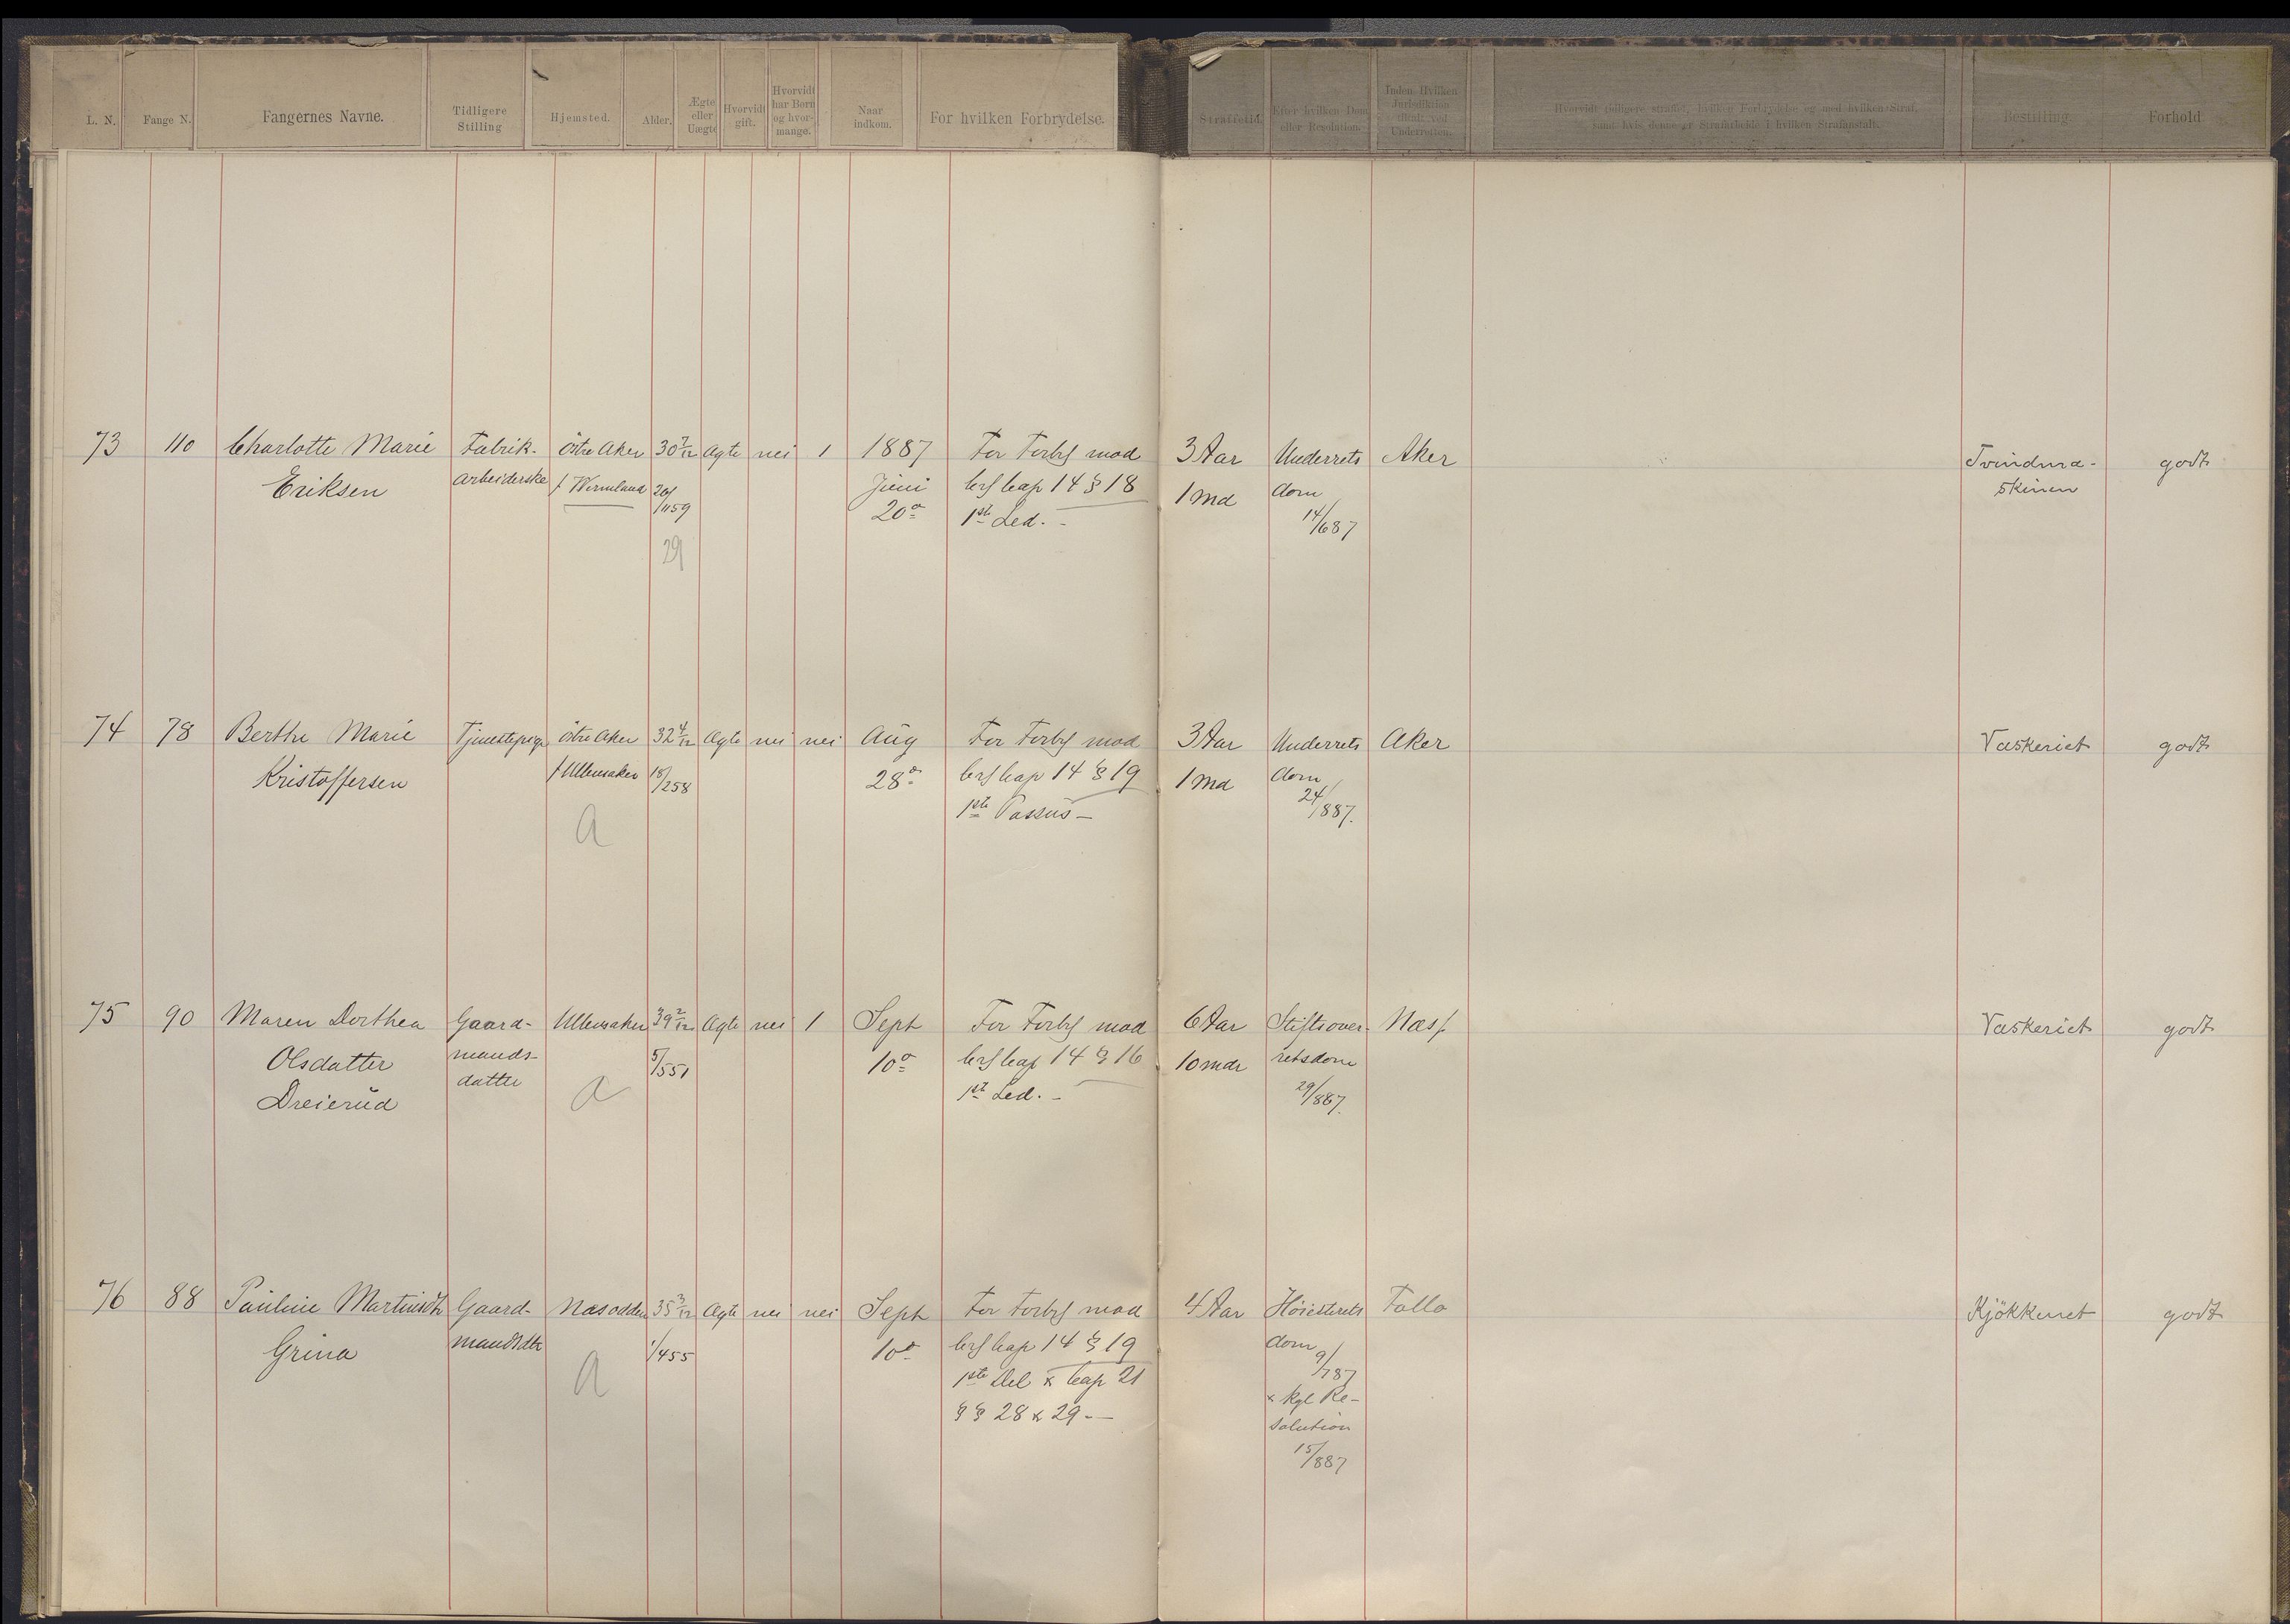 L. N. Fange N. Fangernes Navne. Tidligere Stilling Hjemsted. Alder. Ægte eller Uægte Hvorvidt gift. Hvorvidt har Børn og hvormange. Naar indkom. For hvilken Forbrydelse. Straffetid. Efter hvilken Dom eller Resolution. Inden Hvilken Jurisdiktion tiltalt ved Underretten. Hvorvidt tidligere straffet, hvilken Forbrydelse og med hvilken Straf, samt hvis denne er Strafarbeide i hvilken Strafanstalt. Bestilling Forhold
73 110 Charlotte Marie Fabrik- östre Aker 30 7/12 Ægte nei 1 1887 For Forbr mod 3 Aar Underrets Aker Tvindma- godt
Eriksen arbeiderske f Wermland 20/11 59 Juni Crl Cap 14 § 18 1 Md dom skinen
20de 1ste Led. - 14/6 87
29
74 78 Berthe Marie Tjenestepige östre Aker 32 4/12 Ægte nei nei Aug For Forbr mod 3 Aar Underrets Aker Vaskeriet godt
Kristoffersen f Ullensaker 18/2 58 28de Crl Cap 14 § 19 1 Md dom
a 1ste Passus - 24/8 87.
75 90 Maren Dorthea Gaard- Ullensaker 39 2/12 Ægte nei 1 Sept For Forbr mod 6 Aar Stiftsover- Næs f. Vaskeriet godt
Olsdatter mands- 5/5 51 10de Crl Cap 14 § 16 10 Mdr retsdom
Dreierud datter a 1ste Led. - 29/8 87.
76 88 Pauline Martinsdtr Gaard- Næsodden 35 3/12 Ægte nei nei Sept For Forbr mod 4 Aar Höiesterets Follo Kjökkenet godt
Grina mandsdtr 1/4 55 10de Crl Cap 14 § 19 dom
a 1ste Del & Cap 21 9/7 87
§ § 28 & 29 - & Kgl Re-
solution
15/8 87